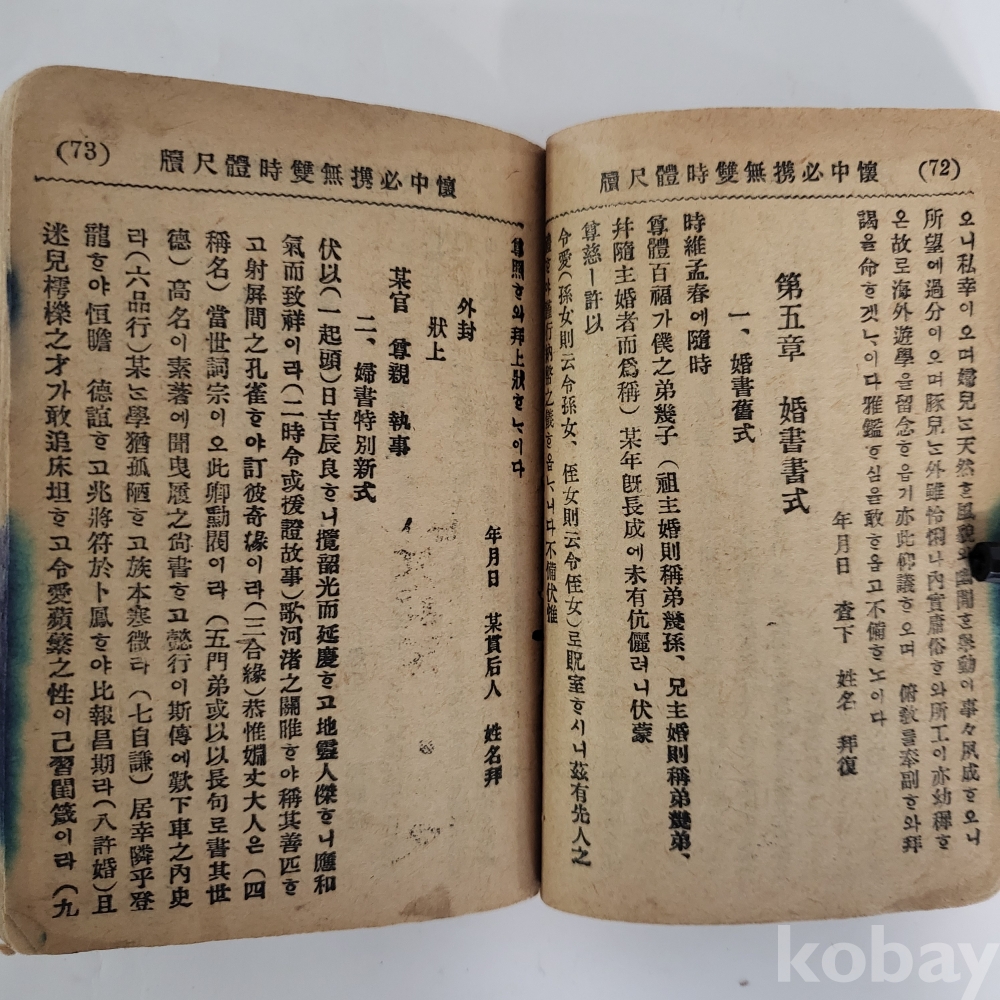 懷中必携無雙時體尺牘 (72)
오니私幸이오며婦兒는天然ᄒᆞᆫ風貌와幽閒ᄒᆞᆫ擧動이事々夙成ᄒᆞ오니
所望에過分이오며豚兒는外雖恰悧나內實庸俗ᄒᆞ와所工이亦幼穉ᄒᆞ
온故로海外遊學을留念ᄒᆞ옵기亦此稗議ᄒᆞ오며 俯敎를奉副ᄒᆞ와拜
謁을命ᄒᆞ겟ᄂᆞ이다雅鑑ᄒᆞ심을敢ᄒᆞ옵고不備ᄒᆞ노이다
年月日 査下 姓名 拜復
第五章 婚書書式
一、婚書舊式
時維孟春에隨時
尊體百福가僕之弟幾子(祖主婚則稱弟幾孫、兄主婚則稱弟幾弟、
幷隨主婚者而爲稱)某年旣長成에未有伉儷러니伏蒙
尊慈ㅣ許以
令愛(孫女則云令孫女、侄女則云令侄女)로貺室ᄒᆞ시니玆有先人之
納幣之儀ᄒᆞ옵ᄂᆞ니다不備伏惟
懷中必携無雙時體尺牘 (73)
尊照ᄒᆞ와拜上狀ᄒᆞᄂᆞ이다
年月日 某貫后人 姓名拜
外封
狀上
某官 尊親 執事
二、婦書特別新式
伏以(一起頭)日吉辰良ᄒᆞ니攬韶光而延慶ᄒᆞ고地靈人傑ᄒᆞ니應和
氣而致祥이라(二時令或援證故事)歌河渚之關雎ᄒᆞ야稱其善匹ᄒᆞ
고射屏間之孔雀ᄒᆞ야訂彼奇緣이라(三合緣)恭惟姻丈大人은(四
稱名)當世詞宗이오此卿勳閥이라(五門弟或以以長句로書其世
德)高名이素著에聞曳履之尙書ᄒᆞ고懿行이斯傳에歎下車之內史
라(六品行)某는學猶孤陋ᄒᆞ고族本寒微라(七自謙)居幸隣乎登
龍ᄒᆞ야恒瞻 德誼ᄒᆞ고兆將符於卜鳳ᄒᆞ야比報昌期라(八許婚)且
迷兒樗櫟之才가敢追床坦ᄒᆞ고令愛蘋蘩之性이己習閨箴이라(九
kobay